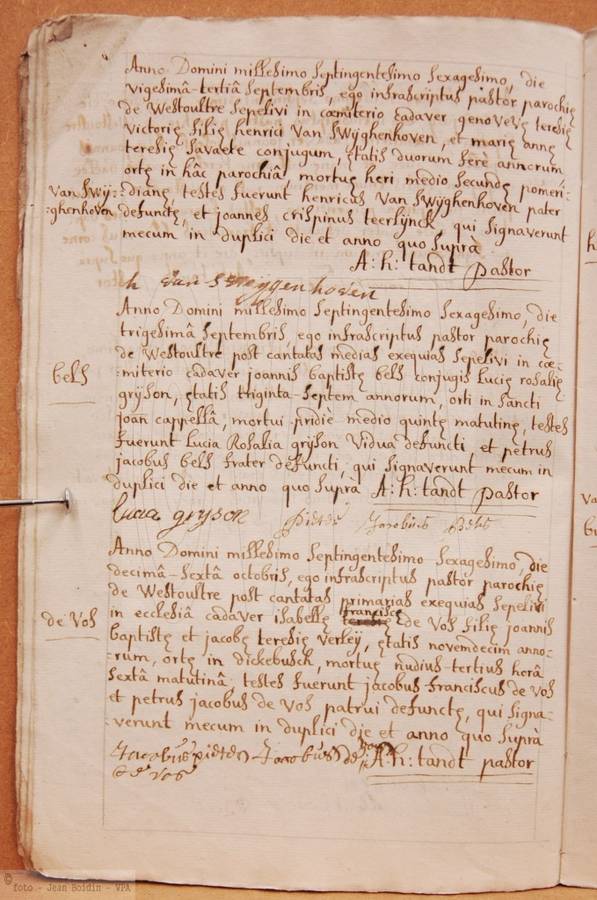 Anno Domini millesimo Septingentesimo Sexagesimo, die
vigesimâ-tertiâ Septembris, ego infrascriptus pastor parochię
de Westoultre Sepelivi in cœmiterio cadaver genovevę teresię
victorię filię henrici Van Swÿghenhoven, et marię annę
teresię Savaete conjugum, ętatis duorum ferè annorum
ortę in hâc parochiâ, mortuę heri medio secundę pomeri-
Van Swij-:
:ghenhoven
:dianę testes fuerunt henricus Van Swÿghenhoven pater
defunctę, et joannes crispinus teerlÿnck qui signaverunt
mecum in duplici die et anno quo Suprà
A:h: tandt pastor
h van Sweÿgenhoven
Anno Domini millesimo Septingentesimo Sexagesimo, die
trigesimâ Septembris, ego infrascriptus pastor parochię
de Westoultre post cantatas medias exequias Sepelivi in cœ-
bels
:miterio cadaver joannis baptistę bels conjugis Lucię rosalię
grÿson, ętatis triginta-Septem annorum, orti in Sancti
joan cappellâ, mortui pridiè medio quintę matutinę, testes
fuerunt Lucia Rosalia grÿson Vidua defuncti et petrus
jacobus bels frater defuncti, qui signaverunt mecum in
duplici die et anno quo Suprà A:h: tandt pastor
luca grÿson pieter Jacobus
Anno Domini millesimo Septingentesimo Sexagesimo, die
decimâ-Sextâ octobris, ego infrascriptus pastor parochię
de Westoultre post cantatas primarias exequias Sepelivi
francisce
de Vos
in ecclesiâ cadaver isabellę de Vos filię joannis
baptistę et jacobę teresię verleÿ, ętatis novemdecim anno-
:rum, ortę in dickebusch, mortuę nudius-tertius horâ
Sextâ matutinâ testes fuerunt jacobus-franciscus de Vos
et petrus jacobus de Vos patrui defunctę, qui signa-
:verunt mecum in duplici die et anno quo Suprà
Jacobus pieter Jacobus de A:h: tandt pastor
de vos
© foto - Jean Boidin - VPA